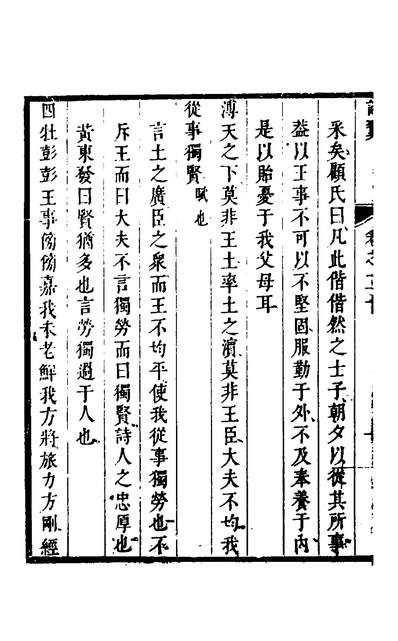 采矣顧氏曰凡此偕偕然之士子朝夕以從其所事
葢以王事不可以不堅固服勤于外不及奉養于內
是以貽憂于我父母耳
溥天之下莫非王土率土之濱莫非王臣大夫不均我
從事獨賢賦也
言土之廣臣之衆而王不均平使我從事獨勞也不
斥王而曰大夫不言獨勞而曰獨賢詩人之忠厚也
黃東發曰賢猶多也言勞獨過于人也
四牡彭彭王事傍傍嘉我未老鮮我方將旅力方剛經